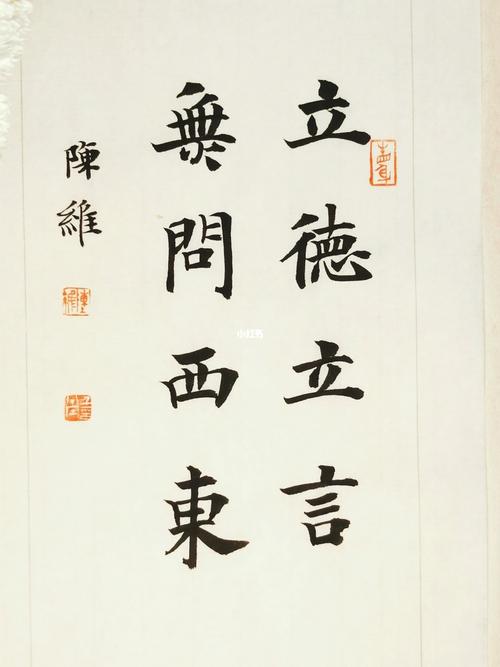 立德立言
無問西東
陳維
小红书